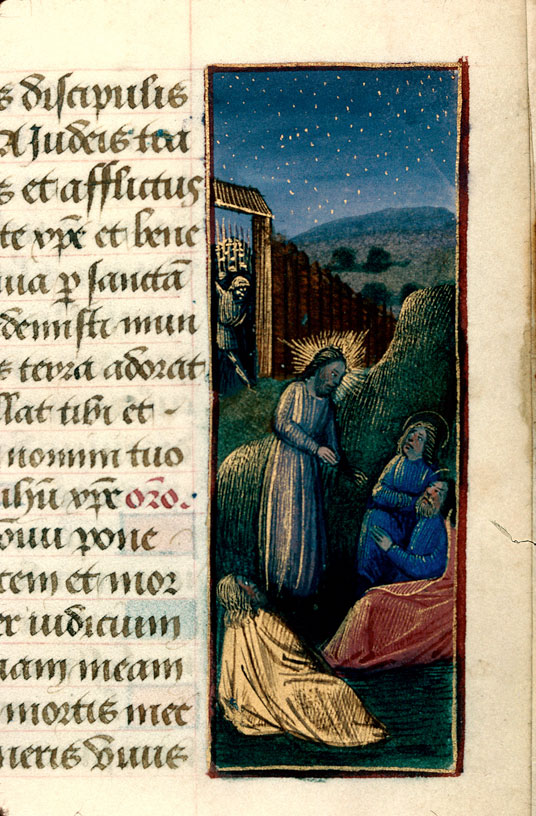 s discipulis
A Judeis tra
s et afflictus
te xp̄e et bene
ua p̱ sanctā
demisti mun
s terra adorat
llat tibi et -
nomini tuo
ihū xp̄e or̄o.
om̄ pone
tem et mor
er iudicium
nam meam
mortis mee
neris viuis